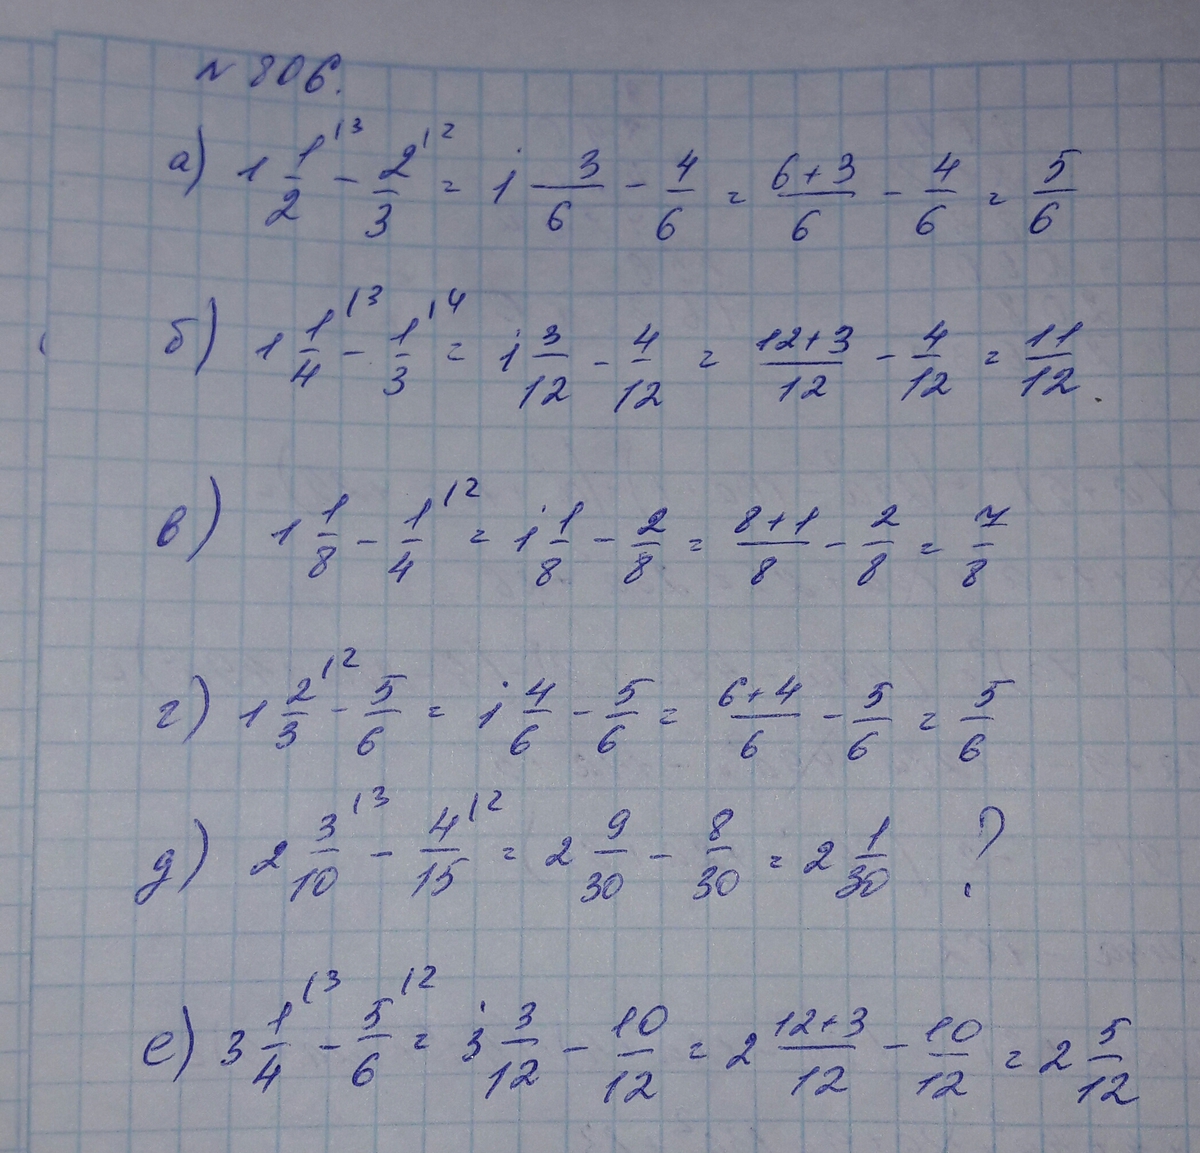 № 806.
а) 1 1/2 |3 - 2/3 |2 = 1 3/6 - 4/6 = 6+3/6 - 4/6 = 5/6
б) 1 1/4 |3 - 1/3 |4 = 1 3/12 - 4/12 = 12+3/12 - 4/12 = 11/12.
в) 1 1/8 - 1/4 |2 = 1 1/8 - 2/8 = 8+1/8 - 2/8 = 7/8
г) 1 2/3 |2 - 5/6 = 1 4/6 - 5/6 = 6+4/6 - 5/6 = 5/6
д) 2 3/10 |3 - 4/15 |2 = 2 9/30 - 8/30 = 2 1/30 ?
е) 3 1/4 |3 - 5/6 |2 = 3 3/12 - 10/12 = 2 12+3/12 - 10/12 = 2 5/12